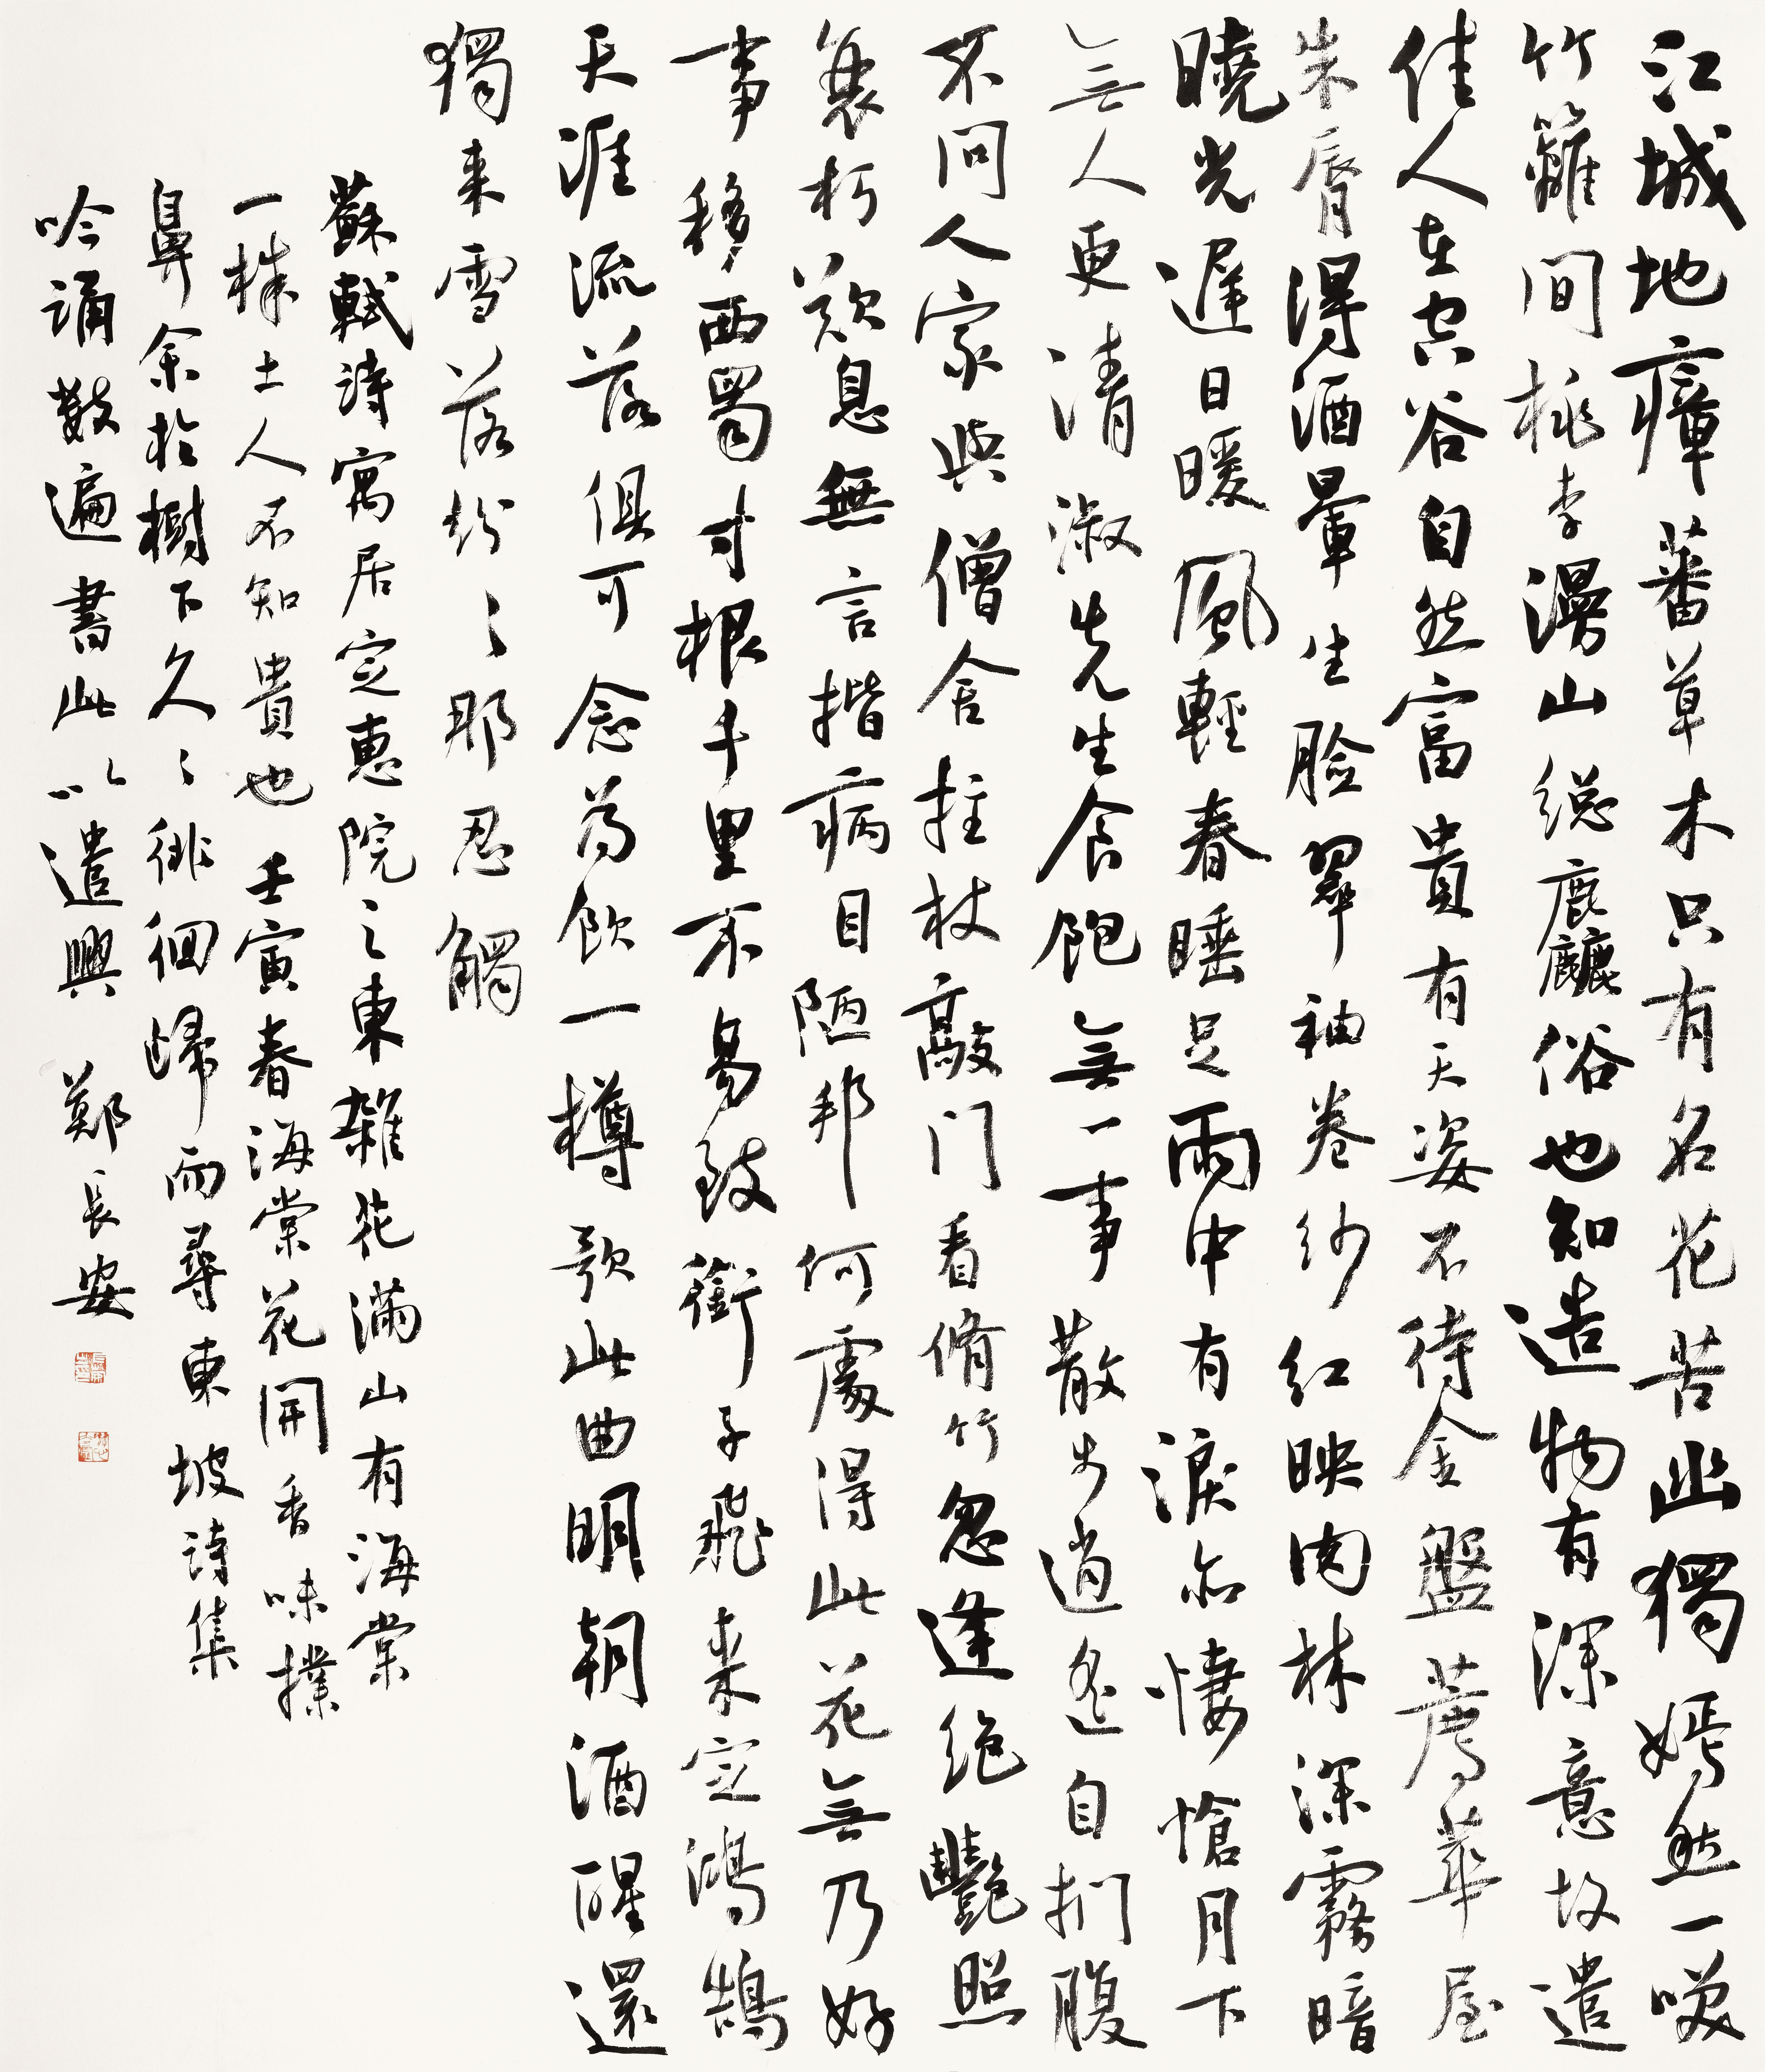 江城地瘴蕃草木只有名花苦幽獨嫣然一笑
竹籬間桃李漫山總麤俗也知造物有深意故遣
佳人在空谷自然富貴有天姿不待金盤薦華屋
朱脣得酒暈生臉翠袖卷紗紅映肉林深霧暗
曉光遲日暖風輕春睡足雨中有淚亦悽愴月下
無人更清淑先生食飽無一事散步逍遙自捫腹
不問人家與僧舍拄杖敲門看脩竹忽逢絕艷照
衰朽歎息無言揩病目陋邦何處得此花無乃好
事移西蜀寸根千里不易致銜子飛來定鴻鵠
天涯流落俱可念為飲一樽歌此曲明朝酒醒還
獨來雪落紛〻那忍觸
蘇軾詩寓居定惠院之東雜花滿山有海棠
一株土人不知貴也 壬寅春海棠花開香味撲
鼻余於樹下久〻徘徊歸而尋東坡詩集
吟誦數遍書此以遣興 鄭長安